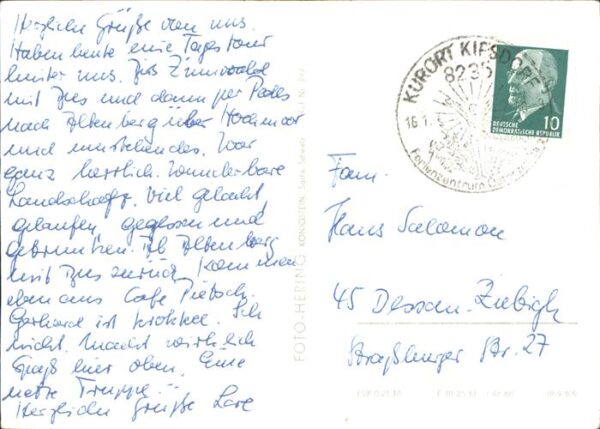 Herzliche Grüße von uns.
Haben heute eine Tagestour
hinter uns. Bis Zinnwald
mit Bus und dann per Pedes
nach Altenberg über Hochmoor
und
ganz herrlich. Wunderbare
Landschaft. Viel gelacht,
gelaufen, gegessen und
getrunken. Ab Altenberg
mit Bus zurück. Kommen
eben aus Cafe Pietsch.
Gerhard ist
nicht. Macht wirklich
Spaß hier oben. Eine
nette Truppe!
Herzliche Grüße
FOTO-HERING KÖNIGSTEIN, Sächs. Schweiz
KURORT KIPSDORF
8235
16.1
Ferienzentrum
DEUTSCHE
DEMOKRATISCHE REPUBLIK
10
Fam.
Hans Salomon
45 Dessau-Ziebigk
Straßburger Str. 27